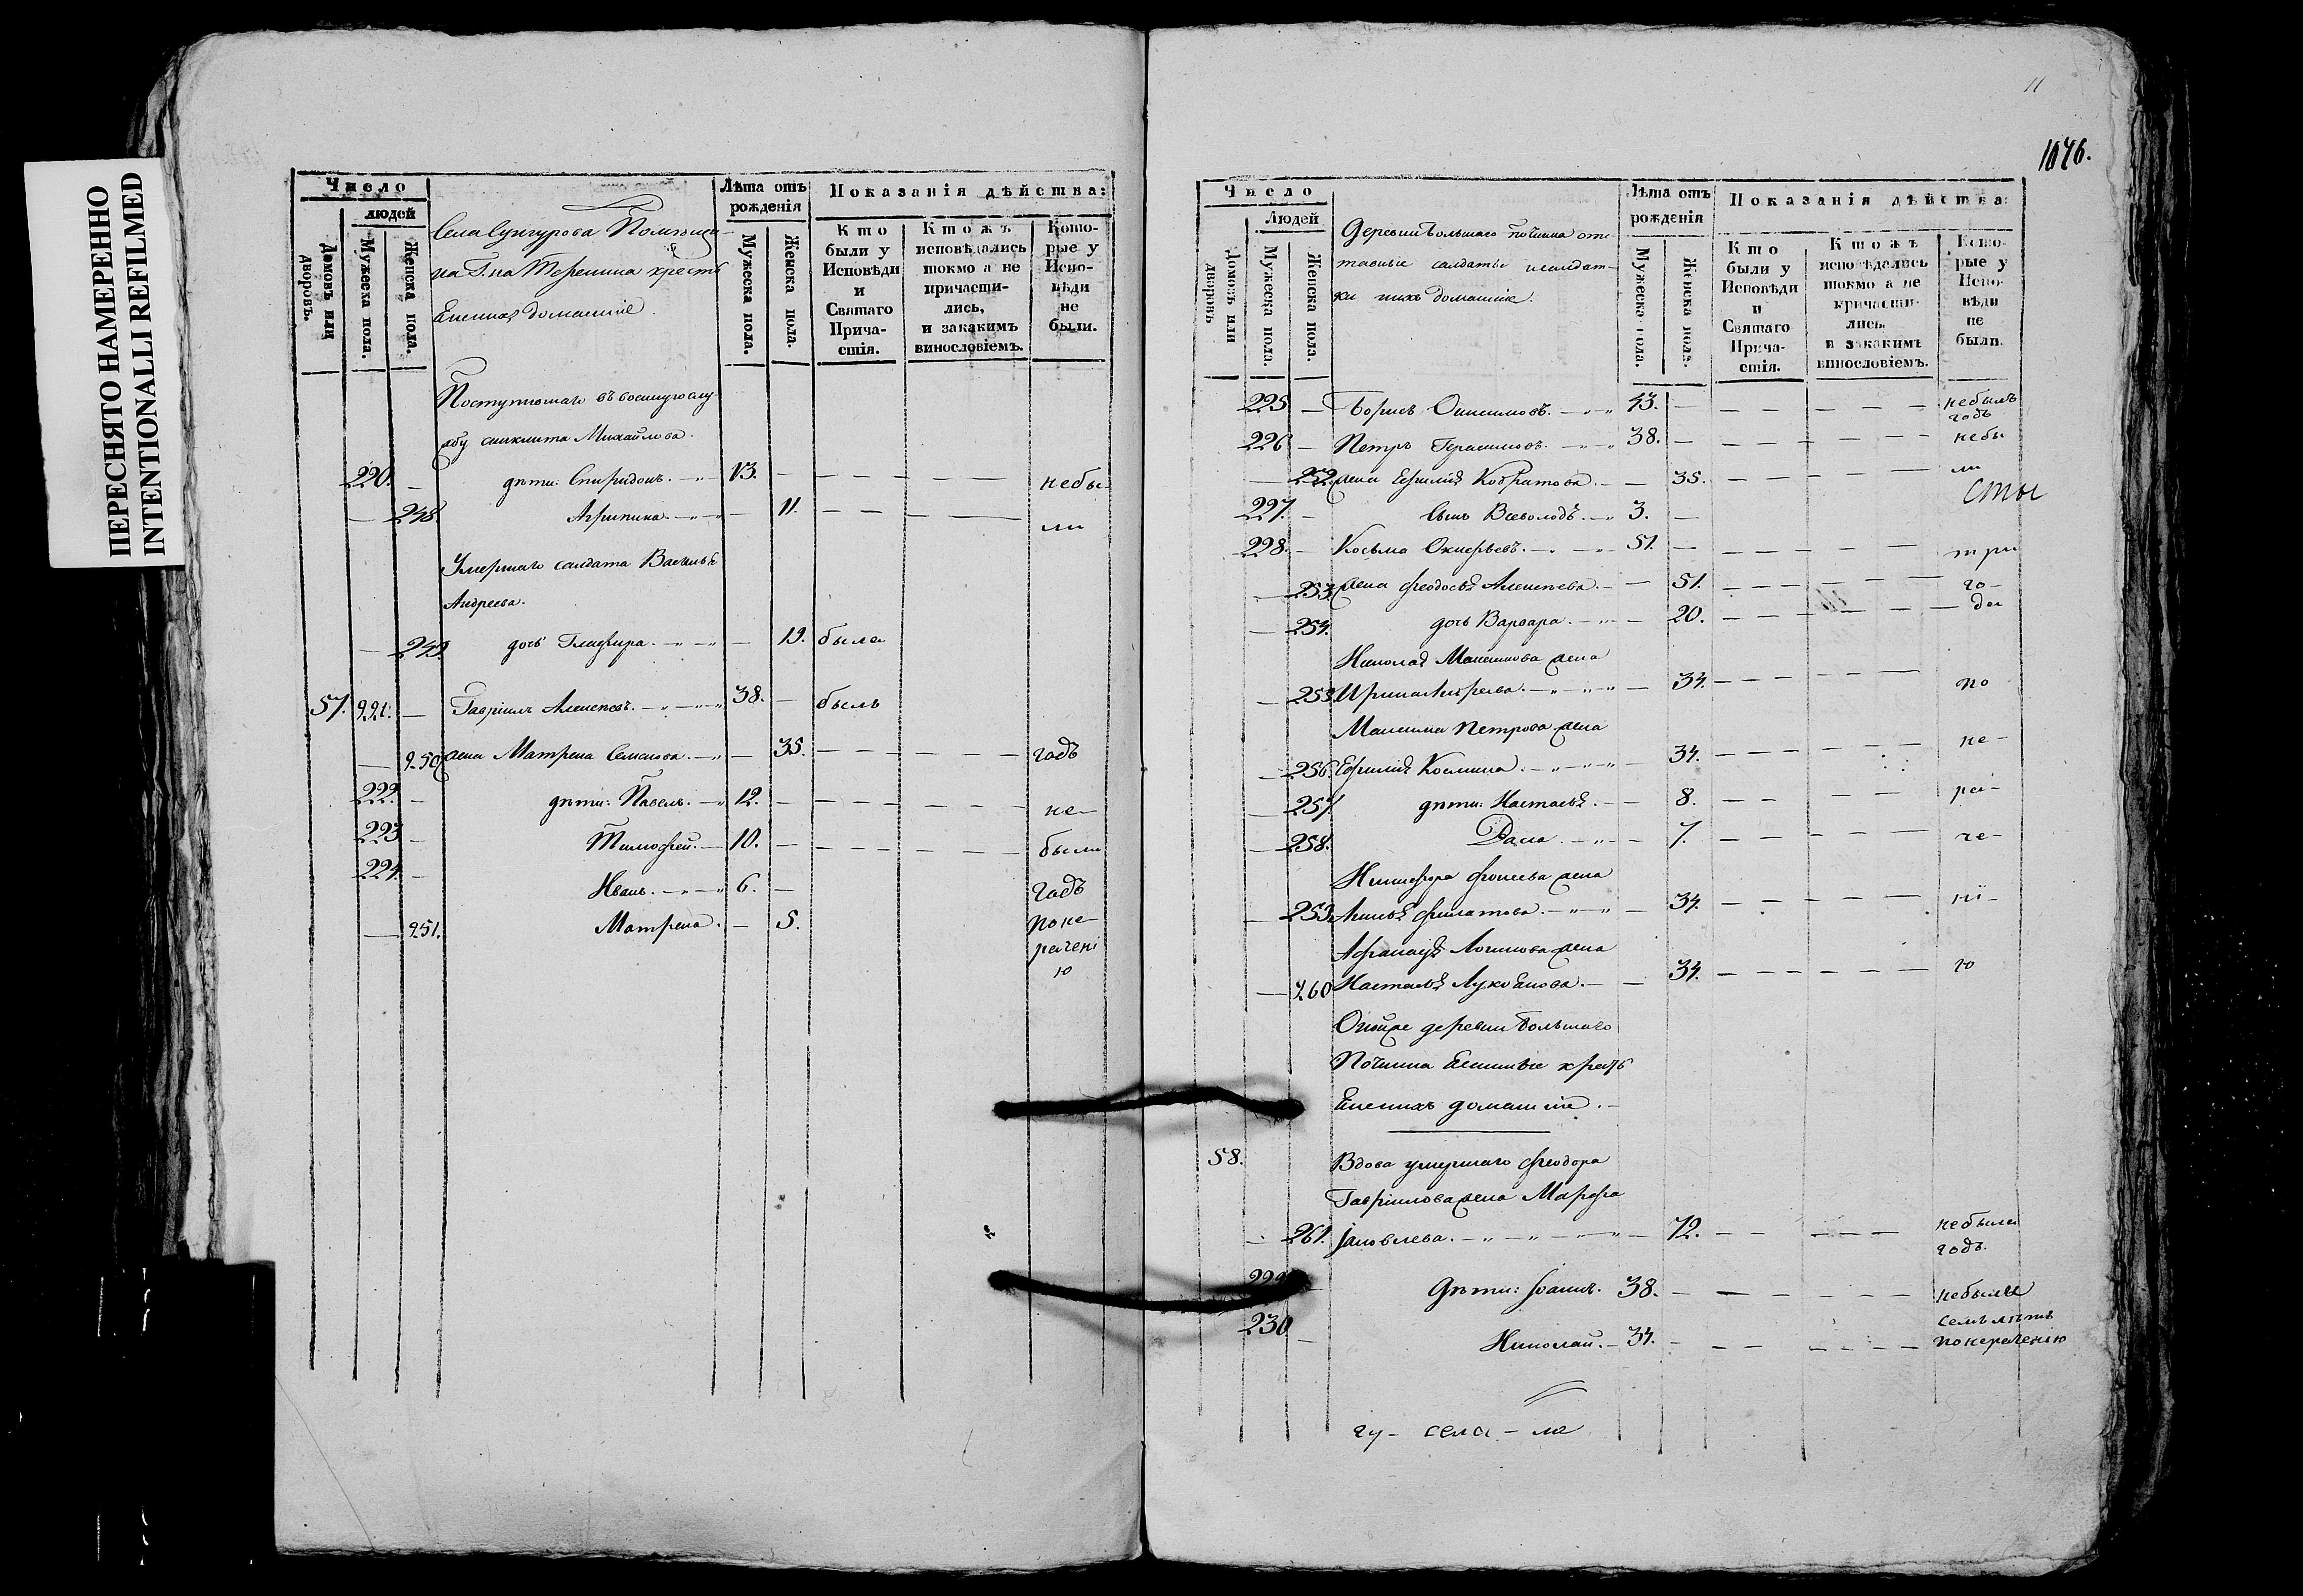 ПЕРЕСНЯТО НАМЕРЕННО
INTENTIONALLI REFILMED
Число
людей
Домовъ или дворовъ.
Мужеска пола.
Женска пола.
Села Сунгурова Помѣщи-
ка Г.на Терепина кресть
Енеѧ домашніе.
Лѣта отъ рожденія
Мужеска пола.
Женска пола.
Показанія дѣйства:
Кто были у Исповѣди и Святаго Прича-стія.
Кто жъ исповѣдались токмо а не причасти-лись, и закакимъ винословіемъ.
Кото-рые у Испо-вѣди не были.
Поступившаго въ военную слу
жбу Михайлова.
220. — дѣти: Спиридонъ. — 13. — небы
— 248. Агрипина. — 11. — ли
Умершаго солдата Василья
Андреева.
— 249. дочь Гликирія. — 19. была
57. 221. — Гавріилъ Алексѣевъ. — 38. — былъ
— 250. жена Матрена Семенова. — 35. — годъ
222. — дѣти: Павелъ. — 12. — не—
223 — Тимофей. — 10. — были
224. — Иванъ. — 6. — годъ
— 251. Матрена. — 5. поне—
рачені
ю
11
1046.
Число
Людей
Домовъ или дворовъ
Мужеска пола.
Женска пола.
Деревни Большаго Починка отс
тавные солдаты и солдат-
ки ихъ домашніе.
Лѣта отъ рожденія
Мужеска пола.
Женска пола.
Показанія дѣйства:
Кто были у Исповѣди и Святаго Прича-стія.
Кто жъ исповѣдались токмо а не причасти-лись, и закакимъ винословіемъ.
Кото-рые у Испо-вѣди не были.
225 — Борисъ Онисимовъ. — 43. — небылъ
годъ
226 — Петръ Герасимовъ. — 38. — небы
— 252 жена Ефимія Кодратова. — 35. — ли
сты
227. — сынъ Всеволодъ. — 3. —
228. — Косьма Окисрьевъ. — 51. — три
— 253. жена Феодосья Алексѣева. — 51. — го—
— 254. дочь Варвара. — 20. — да
Николая Максимова жена
— 255. Ирина Андреева. — 34. — по
Максима Петрова жена
— 256. Ефимія Космина. — 34. — не—
— 257. дѣти: Настасья. — 8. — ра—
— 258. Дала. — 7. — че—
Никифора Фокеева жена
— 259. Анисья Филатова. — 34. — ні—
Афанасія Логинова жена
— 260 Настасья Лукьянова. — 34. — ю
Онойже деревни Большаго
Починка крестъ
Енекихъ домашніе. —
58. Вдова умершаго Феодора
Гаврилова жена Марфа
— 261. Іаковлева. — 72. — небыла
годъ.
229 — Дѣти: Іоаннъ. 38. — небыли
семь лѣтъ
230 — Николай. — 34. — понераченію
гу- села - ле